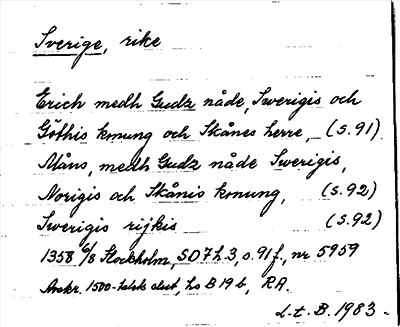 Sverige, rike
Erich medh Gudz nåde, Swerigis och
Göthis konung och Skånes herre, (s.91)
Måns, medh Gudz nåde Swerigis,
Norigis och Skånis konung, (s.92)
Swerigis rijkis (s.92)
1358 6/8 Stockholm, SD 7 h 3, s. 91 f., nr 5959
Avskr. 1500-talets slut, hs B 19 b, RA.
L.t.B. 1983.